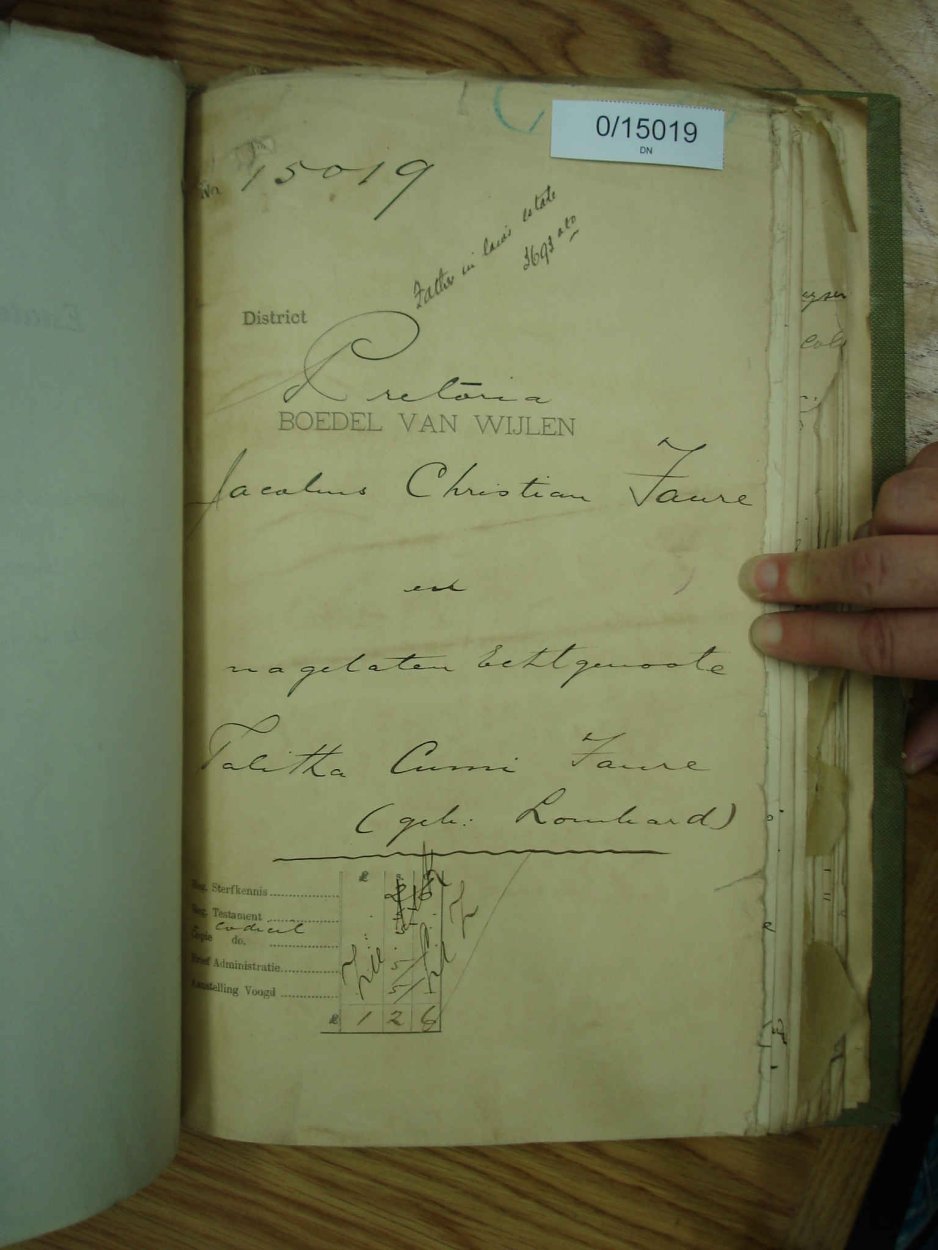 0/15019
DN
No. 15019
Father in law's estate
3693
District
Pretoria
BOEDEL VAN WIJLEN
Jacobus Christian Faure
en
nagelaten Echtgenoote
Talitha Cumi Faure
(geb: Lombard)
£
Reg. Sterfkennis
Reg. Testament
Codicil
Copie do.
Brief Administratie 5/
Aanstelling Voogd 5/
£ 1 2 6